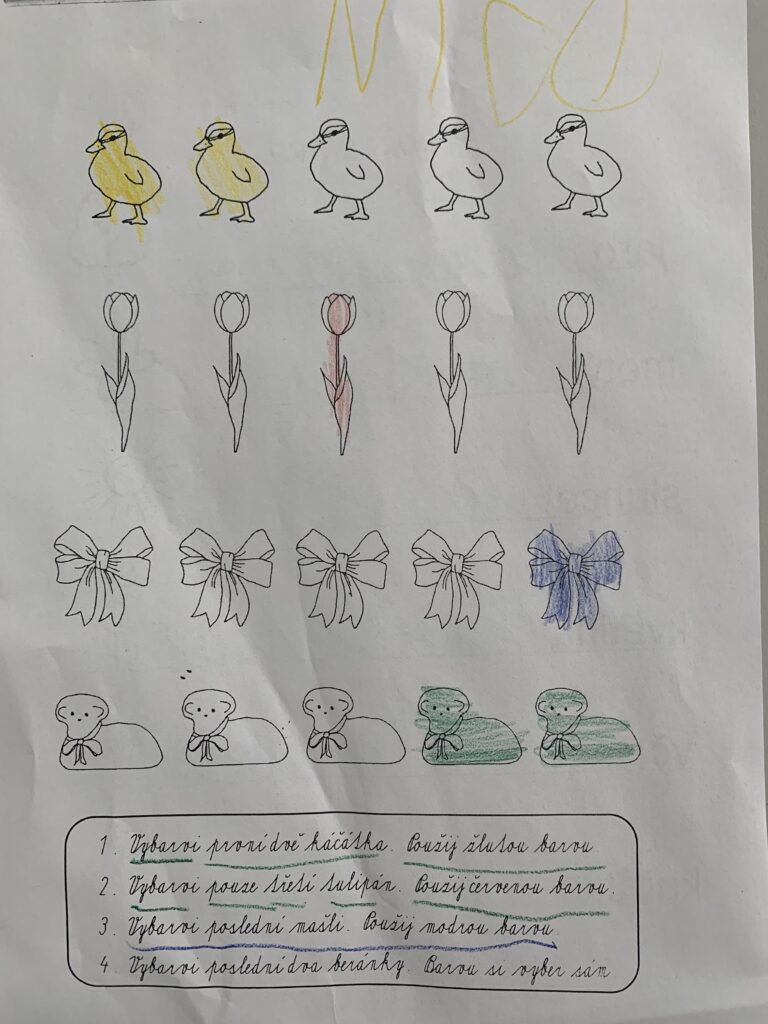 1. Vybarvi první dvě káčátka. Použij žlutou barvu.
2. Vybarvi pouze třetí tulipán. Použij červenou barvu.
3. Vybarvi poslední mašli. Použij modrou barvu.
4. Vybarvi poslední dva beránky. Barvu si vyber sám